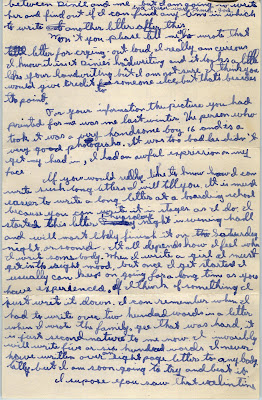 between Dinth and me, but I am going in write
her and find out if I can find any time in which
to write another letter after this.
Won't you please tell me who wrote that
letter for crying out loud, I really am curious
I know it isn't Dinies hidwriting and it looks a little
like your handwriting but I am not sure. I think you
would give credit to someone else, but that's besides
the point.
For your information the picture you had
printed from me was me last winter. The person who
took it was a very handsome boy 16 and is a
very good photogra. It was too bad he didn't
get my head in, I had an awful expression on my
face
If you would really like to know how I can
write such long letters I will tell you. It is much
easier to write a long letter at a boarding school
because you can start in stages as I do. I
started this letter Thursday night in evening hall
and will most likely send it on the Saturday
night or sound. It all depends how I feel when
I write some body. When I write a girl I must
get into the right mood, but once I get started I
usually can keep on going for a long time as you
have experienced. If I think of something I
just write it down. I can remember when I
had to write over two hundred words in a letter
when I wrote the family, gee that was hard, it
is just second nature to me now. I usually
will write five or six hundred words. I never
have written over an eight page letter to any body
lately but I am soon going to try and beat it.
I supose you saw that valintine